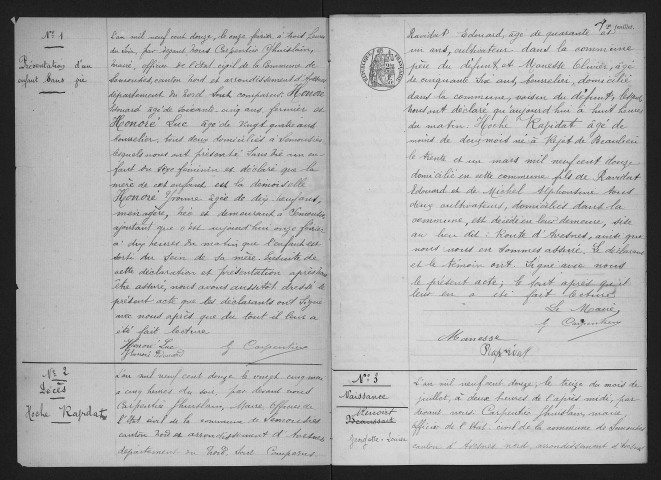 N° 1
Présentation d'un
enfant sans vie
L'an mil neuf cent douze, le onze février à trois heures
du soir, par devant Nous Carpentier Ghuislain,
maire, officier de l'Etat civil de la Commune de
canton Nord et arrondissement d'Avesnes
département du Nord sont comparus Honoré
Edouard âgé de soixante cinq ans, fermier et
Honoré Luc âgé de vingt quatre ans
tonnelier, tous deux domiciliés à
lesquels nous ont présenté sans vie un en-
fant du sexe féminin et déclaré que la
mère de cet enfant est la demoiselle
Honoré Yvonne âgée de dix neuf ans,
ménagère, née et demeurant à
ajoutant que c'est aujourd'hui onze février
à dix heures du matin que l'enfant est
sorti du sein de sa mère. Ensuite de
cette déclaration et présentation après nous
être assuré, nous avons aussitôt dressé le
présent acte que les déclarants ont signé
avec nous après que du tout il leur a
été fait lecture
Honoré Luc
Honoré Edouard G Carpentier
N° 2
Décès
Hoche Rapidat
L'an mil neuf cent douze le vingt cinq mai
à cinq heures du soir, par devant nous
Carpentier Ghuislain, Maire, officier de
l'Etat civil de la commune de
canton Nord et arrondissement d'Avesnes
département du Nord, sont comparus
feuillet.
Ravidat Edouard, âgé de quarante et
un ans, cultivateur dans la commune
père du défunt et Manesse Olivier, âgé
de cinquante six ans, domicilié
dans la commune, voisin du défunt, lesquels
nous ont déclaré qu'aujourd'hui à huit heures
du matin: Hoche Rapidat âgé de
moins de deux mois né à Rejet de Beaulieu
le trente et un mars mil neuf cent douze
domicilié en cette commune fils de Ravidat
Edouard et de Michel Alphonsine tous
deux cultivateurs, domiciliés dans la
commune, est décédé en leur demeure, sise
au lieu dit: Route d'Avesnes, ainsi que
nous nous en sommes assuré. Le déclarant
et le témoin ont signé avec nous
le présent acte; le tout après qu'il
leur en a été fait lecture
Le Maire
G Carpentier
Manesse
N° 3
Naissance
Georgette-Louise
L'an mil neuf cent douze; le treize du mois de
juillet, à deux heures de l'après midi, par
devant nous Carpentier Ghuislain, maire,
officier de l'Etat civil de la commune de
canton d'Avesnes nord, arrondissement d'Avesnes